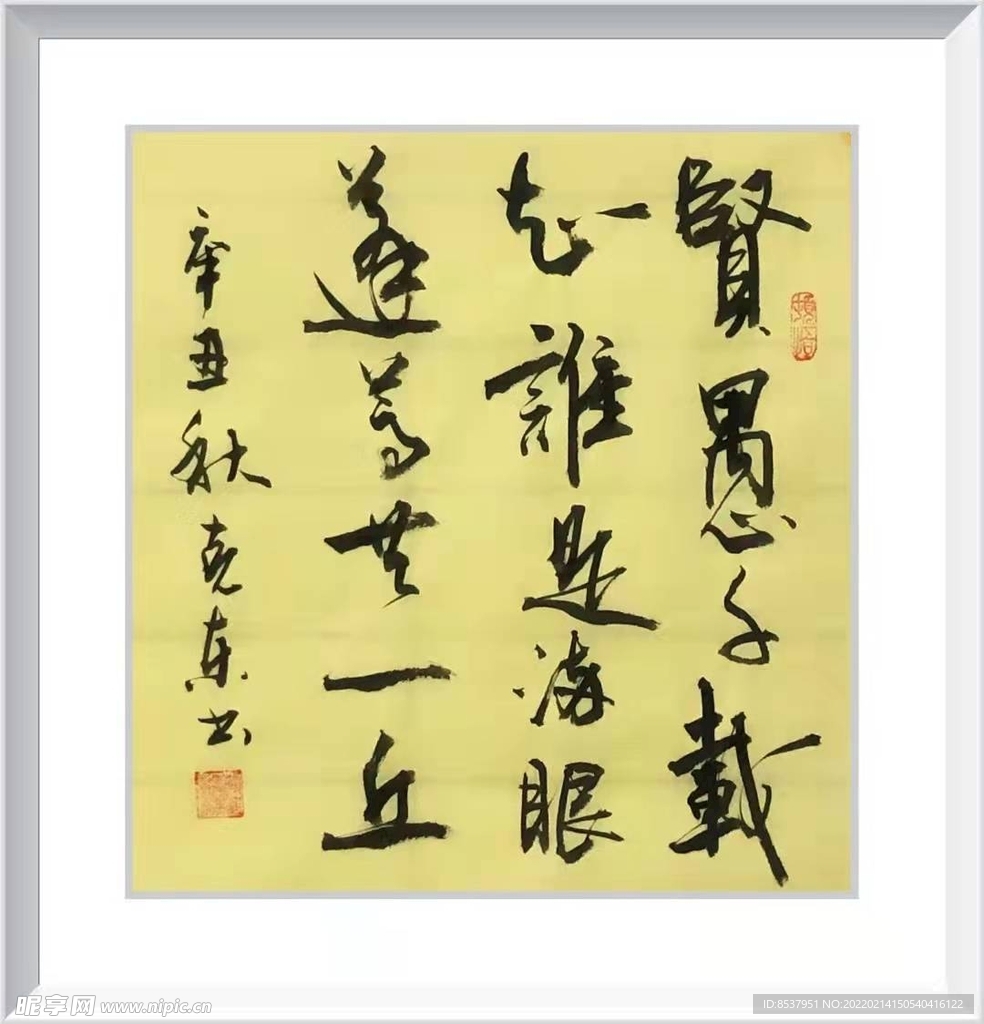 賢愚千載
知誰是滿眼
蓬蒿共一丘
辛丑秋克东书
昵享网 www.nipic.cn
ID:8537951 NO:20220214150540416122